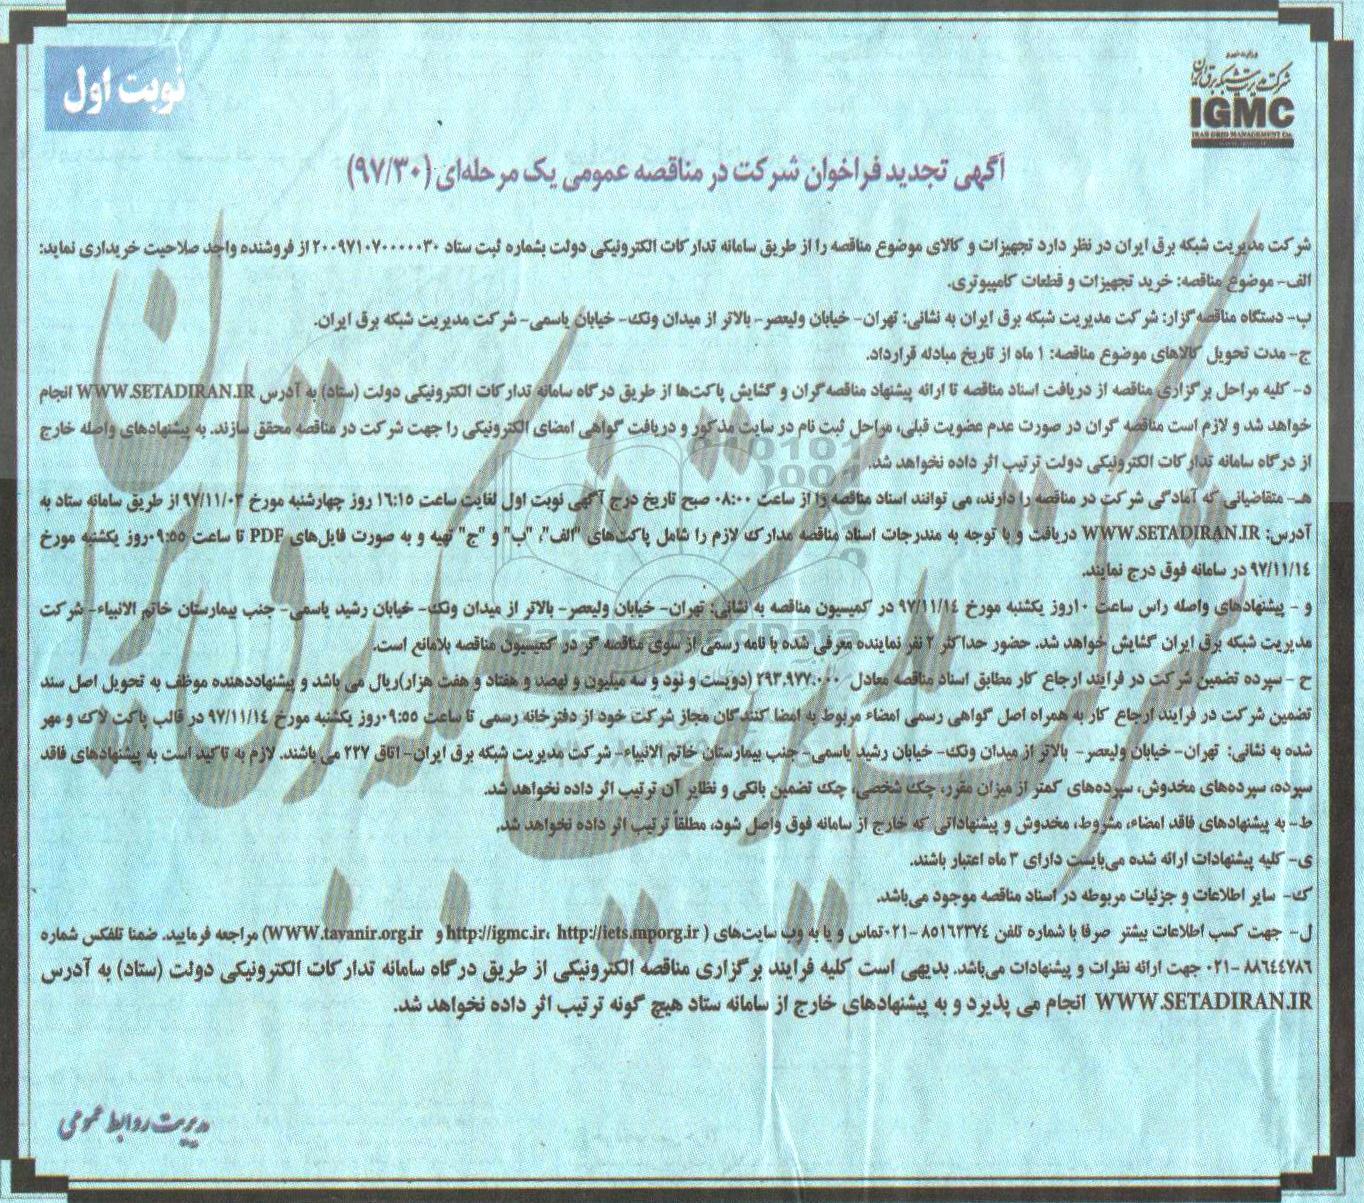 نوبت اول
شرکت مدیریت شبکه برق ایران
IGMC
IRAN GRID MANAGEMENT Co.
آگهی تجدید فراخوان شرکت در مناقصه عمومی یک مرحله‌ای (۹۷/۳۰)
شرکت مدیریت شبکه برق ایران در نظر دارد تجهیزات و کالای موضوع مناقصه را از طریق سامانه تدارکات الکترونیکی دولت بشماره ثبت ستاد ۲۰۰۹۷۱۰۷۰۰۰۰۰۳۰ از فروشنده واجد صلاحیت خریداری نماید:
الف- موضوع مناقصه: خرید تجهیزات و قطعات کامپیوتری.
ب- دستگاه مناقصه‌گزار: شرکت مدیریت شبکه برق ایران به نشانی: تهران- خیابان ولیعصر- بالاتر از میدان ونک- خیابان یاسمی- شرکت مدیریت شبکه برق ایران.
ج- مدت تحویل کالاهای موضوع مناقصه: ۱ ماه از تاریخ مبادله قرارداد.
د- کلیه مراحل برگزاری مناقصه از دریافت اسناد مناقصه تا ارائه پیشنهاد مناقصه‌گران و گشایش پاکت‌ها از طریق درگاه سامانه تدارکات الکترونیکی دولت (ستاد) به آدرس WWW.SETADIRAN.IR انجام
خواهد شد و لازم است مناقصه گران در صورت عدم عضویت قبلی، مراحل ثبت نام در سایت مذکور و دریافت گواهی امضای الکترونیکی را جهت شرکت در مناقصه محقق سازند. به پیشنهادهای واصله خارج
از درگاه سامانه تدارکات الکترونیکی دولت ترتیب اثر داده نخواهد شد.
هـ- متقاضیانی که آمادگی شرکت در مناقصه را دارند، می توانند اسناد مناقصه را از ساعت ۰۸:۰۰ صبح تاریخ درج آگهی نوبت اول لغایت ساعت ۱۶:۱۵ روز چهارشنبه مورخ ۹۷/۱۱/۰۳ از طریق سامانه ستاد به
آدرس: WWW.SETADIRAN.IR دریافت و با توجه به مندرجات اسناد مناقصه مدارک لازم را شامل پاکت‌های "الف"، "ب" و "ج" تهیه و به صورت فایل‌های PDF تا ساعت ۰۹:۵۵روز یکشنبه مورخ
۹۷/۱۱/۱۴ در سامانه فوق درج نمایند.
و - پیشنهادهای واصله راس ساعت ۱۰روز یکشنبه مورخ ۹۷/۱۱/۱۴ در کمیسیون مناقصه به نشانی: تهران- خیابان ولیعصر- بالاتر از میدان ونک- خیابان رشید یاسمی- جنب بیمارستان خاتم الانبیاء- شرکت
مدیریت شبکه برق ایران گشایش خواهد شد. حضور حداکثر ۲ نفر نماینده معرفی شده با نامه رسمی از سوی مناقصه گر در کمیسیون مناقصه بلامانع است.
ح - سپرده تضمین شرکت در فرایند ارجاع کار مطابق اسناد مناقصه معادل ۲۹۳،۹۷۷،۰۰۰ (دویست و نود و سه میلیون و نهصد و هفتاد و هفت هزار)ریال می باشد و پیشنهاددهنده موظف به تحویل اصل سند
تضمین شرکت در فرایند ارجاع کار به همراه اصل گواهی رسمی امضاء مربوط به امضا کنندگان مجاز شرکت خود از دفترخانه رسمی تا ساعت ۰۹:۵۵روز یکشنبه مورخ ۹۷/۱۱/۱۴ در قالب پاکت لاک و مهر
شده به نشانی: تهران- خیابان ولیعصر- بالاتر از میدان ونک- خیابان رشید یاسمی- جنب بیمارستان خاتم الانبیاء- شرکت مدیریت شبکه برق ایران- اتاق ۲۲۷ می باشند. لازم به تاکید است به پیشنهادهای فاقد
سپرده، سپرده‌های مخدوش، سپرده‌های کمتر از میزان مقرر، چک شخصی، چک تضمین بانکی و نظایر آن ترتیب اثر داده نخواهد شد.
ط- به پیشنهادهای فاقد امضاء، مشروط، مخدوش و پیشنهاداتی که خارج از سامانه فوق واصل شود، مطلقاً ترتیب اثر داده نخواهد شد.
ی- کلیه پیشنهادات ارائه شده می‌بایست دارای ۳ ماه اعتبار باشند.
ک- سایر اطلاعات و جزئیات مربوطه در اسناد مناقصه موجود می‌باشد.
ل- جهت کسب اطلاعات بیشتر صرفا با شماره تلفن ۸۵۱۶۲۳۷۴ -۰۲۱تماس و یا به وب سایت‌های ( http://igmc.ir، http://iets.mporg.ir و WWW.tavanir.org.ir) مراجعه فرمایید. ضمنا تلفکس شماره
۸۸۶۴۴۷۸۶ -۰۲۱ جهت ارائه نظرات و پیشنهادات می‌باشد. بدیهی است کلیه فرایند برگزاری مناقصه الکترونیکی از طریق درگاه سامانه تدارکات الکترونیکی دولت (ستاد) به آدرس
WWW.SETADIRAN.IR انجام می پذیرد و به پیشنهادهای خارج از سامانه ستاد هیچ گونه ترتیب اثر داده نخواهد شد.
مدیریت روابط عمومی